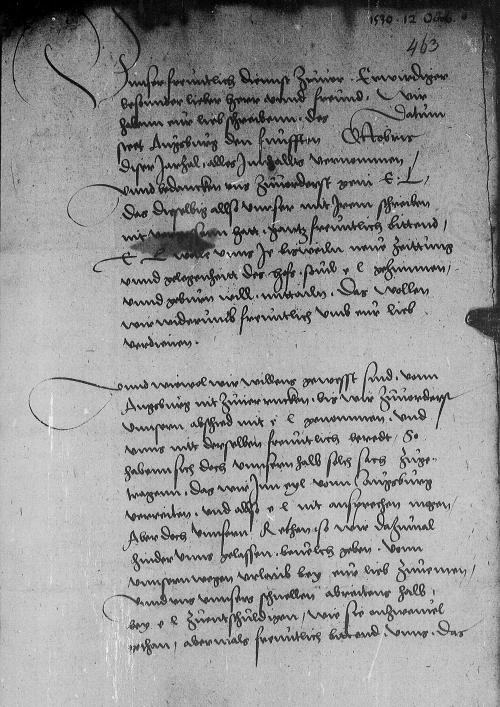 1530. 12 Octob.
463
Unnser freuntlich dienst Zuuor. Erwirdiger
besunder lieber herr vnnd freund. Wir
habenn eur lieb schreibenn, des Datum
steet Augspurg den funfften Octobris
diser Jarzal, alles Innhallts vernommen,
vnnd bedancken vns Zuuorderst gein E. L.
das dieselbig allso vnnser mit Irem schreiben
nit hatt. gantz freuntlich bittend,
E. L. wolle vnns Je bisweiln neue Zeittung
vnnd gelegenheit des hofs, souil e l gezimmen,
vnnd geburn will, mittailn. Das wollen
wir widerumb freuntlich vmb eur lieb
verdienen.
vnnd wiewol wir willens gewesst sind, vonn
Augspurg nit Zuuerrucken, bis wir Zuuorderst
vnnsern abschied mit e l genommen, vnd
vnns mit derselben freuntlich beredt, So
habenn sich doch vnnsern halb solch sach Zuge-
tragenn, das wir Inn eyl vonn Augspurg
verreiten, vnd allso e l nit ansprechen mogen,
Aber doch vnnsern Rethen, so wir dazumal
hinder vnns gelassen, beuelch geben, vonn
vnnsern wegen vrlaub bey eur lieb Zunemen,
vnnd vns vnnsers schnellen abreitens halb,
bey e l Zuentschuldigen, wie sie onzweiuel
gethan, abermals freuntlich bittend, vnns, das